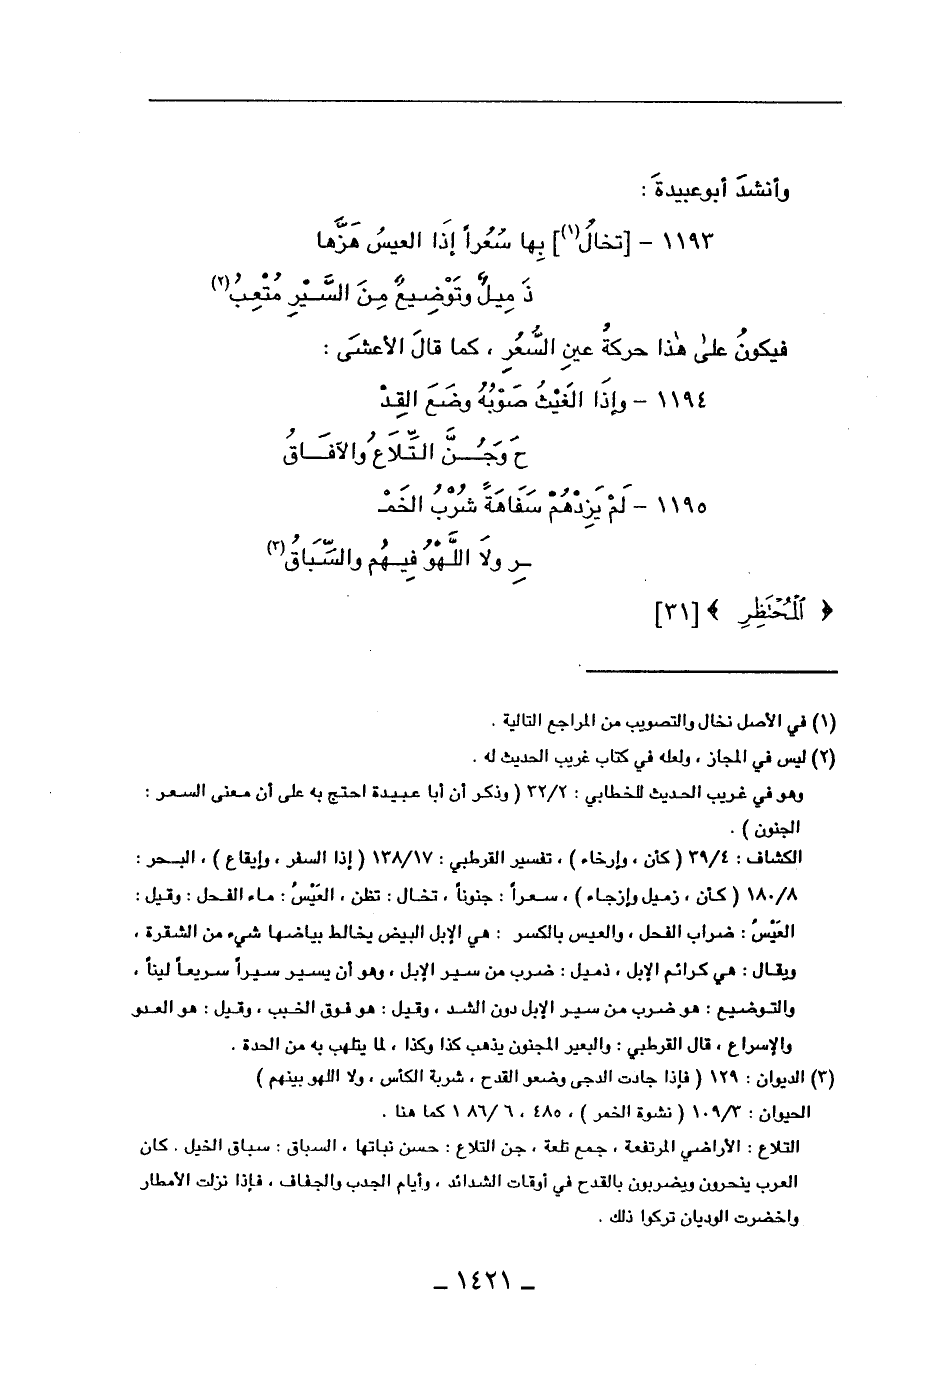 وأنشدَ أبوعبيدةَ :
١١٩٣ – [تخالُ(١)] بِها سُعُراً إذَا العيسُ هَزَّها
ذَ مِيلٌ وتَوْضِيعٌ مِنَ السَّيْرِ مُتْعِبُ(٢)
فيكونُ علىٰ هٰذا حركةُ عينِ السُّعُرِ ، كما قالَ الأعشَى :
١١٩٤ – وإذَا الغَيْثُ صَوْبُهُ وضَعَ القِدْ
حَ وَجُــنَّ التِّلَاعُ والآفَــاقُ
١١٩٥ – لَمْ يَزِدْهُمْ سَفَاهَةً شُرْبُ الخَمْـ
ـرِ ولَا اللَّهْوُ فِيــهُمِ والسِّبَاقُ(٣)
﴿ ٱلْمُحْتَظِرِ ﴾ [٣١]
(١) في الأصل نخال والتصويب من المراجع التالية .
(٢) ليس في المجاز ، ولعله في كتاب غريب الحديث له .
وهو في غريب الحديث للخطابي : ٣٢/٢ ( وذكر أن أبا عبيدة احتج به على أن معنى السعر :
الجنون ) .
الكشاف : ٣٩/٤ ( كأن ، وإرخاء ) ، تفسير القرطبي : ١٣٨/١٧ ( إذا السفر ، وإيقاع ) ، البحر :
١٨٠/٨ ( كأن ، زميل وإزجاء ) ، سعراً : جنوناً ، تخال : تظن ، العَيْسُ : ماء الفحل : وقيل :
العَيْسُ : ضراب الفحل ، والعيس بالكسر : هي الإبل البيض يخالط بياضها شيء من الشقرة ،
ويقال : هي كرائم الإبل ، ذميل : ضرب من سير الإبل ، وهو أن يسير سيراً سريعاً ليناً ،
والتوضيع : هو ضرب من سير الإبل دون الشد ، وقيل : هو فوق الخبب ، وقيل : هو العدو
والإسراع ، قال القرطبي : والبعير المجنون يذهب كذا وكذا ، لما يتلهب به من الحدة .
(٣) الديوان : ١٢٩ ( فإذا جادت الدجى وضعو القدح ، شربة الكأس ، ولا اللهو بينهم )
الحيوان : ١٠٩/٣ ( نشوة الخمر ) ، ٤٨٥ ، ٦ /١٨٦ كما هنا .
التلاع : الأراضي المرتفعة ، جمع تلعة ، جن التلاع : حسن نباتها ، السباق : سباق الخيل . كان
العرب ينحرون ويضربون بالقدح في أوقات الشدائد ، وأيام الجدب والجفاف ، فإذا نزلت الأمطار
واخضرت الوديان تركوا ذلك .
– ١٤٢١ –